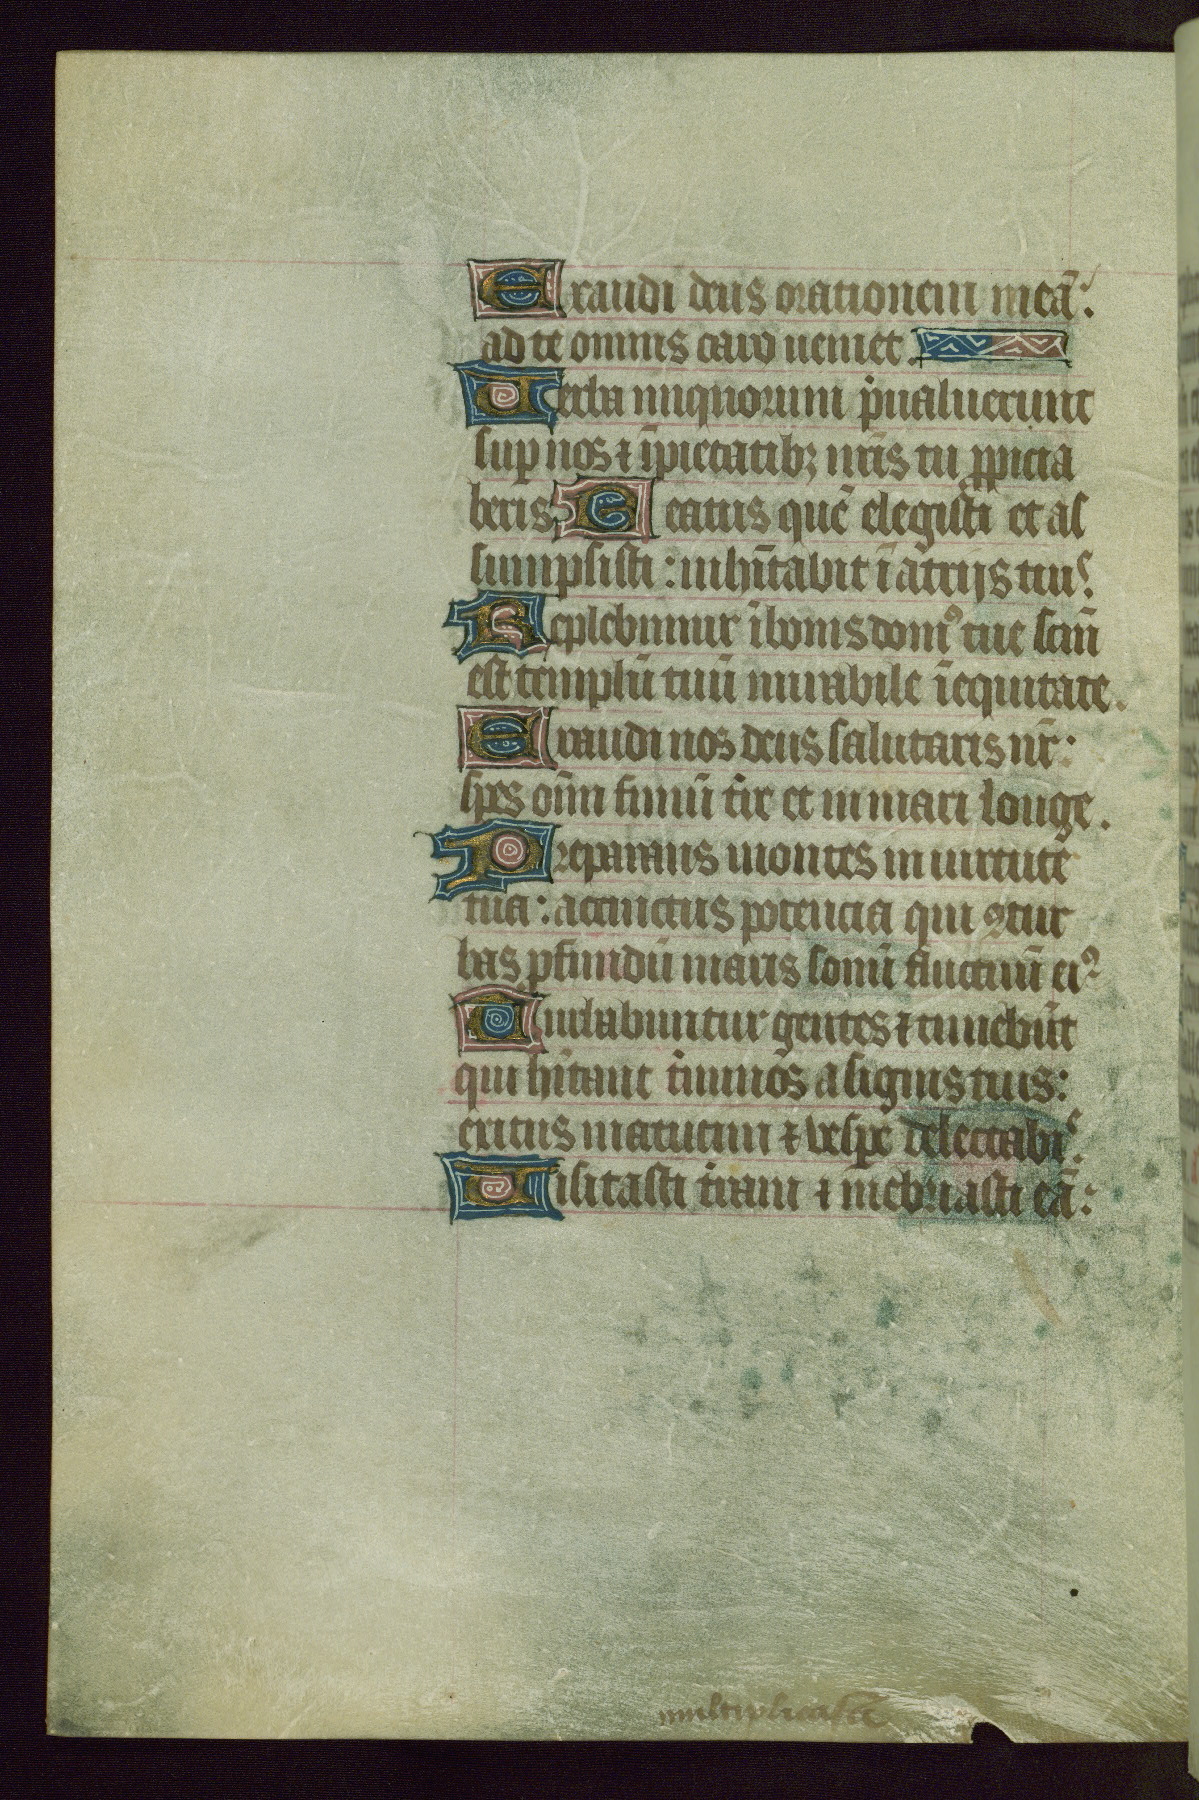 Exaudi deus orationem meā:
ad te omnis caro ueniet.
Verba iniquorum p̄ualuerunt
sup nos ⁊ īpietatibꝫ nr̄is tu ꝓpicia
beris Beatus quē elegisti et as
sumpsisti: inhītabit ī atrijs tuis:
Replebimur ī bonis domꝰ tue scm̄
est templū tuū mirabile ī equitate.
Exaudi nos deus salutaris nr̄:
spes oīm finiū tr̄e et in mari longe.
Preparans montes in uirtute
tua: accinctus potencia qui ꝯtur
bas ꝓfundū maris sonū fluctuū eiꝰ
Turbabuntur gentes ⁊ timebūt
qui hītant t̄minos a signis tuis:
exitus matutini ⁊ vespe delectabis:
Uisitasti t̄ram ⁊ inebriasti eā:
multiplicasti